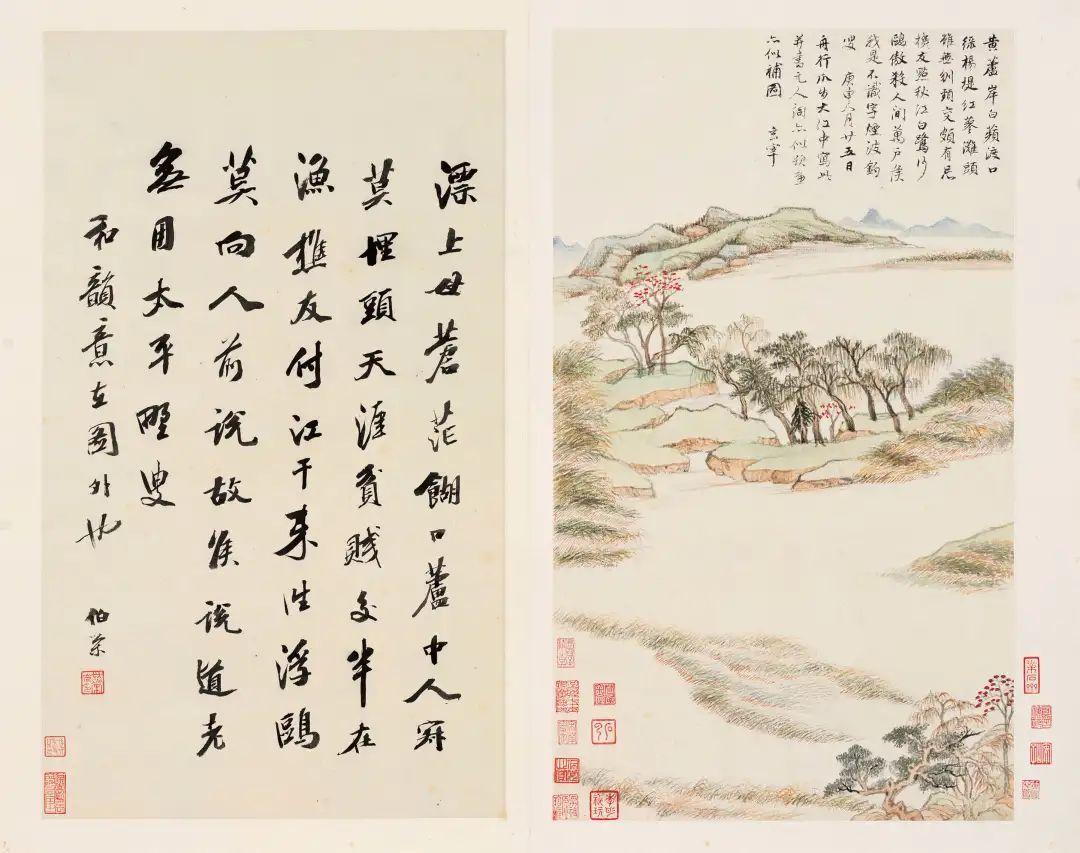 黃蘆岸白蘋渡口
綠楊堤紅蓼灘頭
雖無刎頸交頗有忘
機友點秋江白鷺沙
鷗傲殺人間萬戶侯
我是不識字煙波釣
叟 庚申八月廿五日
舟行瓜步大江中寫此
并書元人詞亦似題畫
亦似補圖 玄宰
漂上母蒼茫餬口蘆中人寂
莫埋頭天涯貧賤交半在
漁樵友付江干來往浮鷗
莫向人前說故侯說道老
無用太平野叟
和韻意在圖外也 伯榮